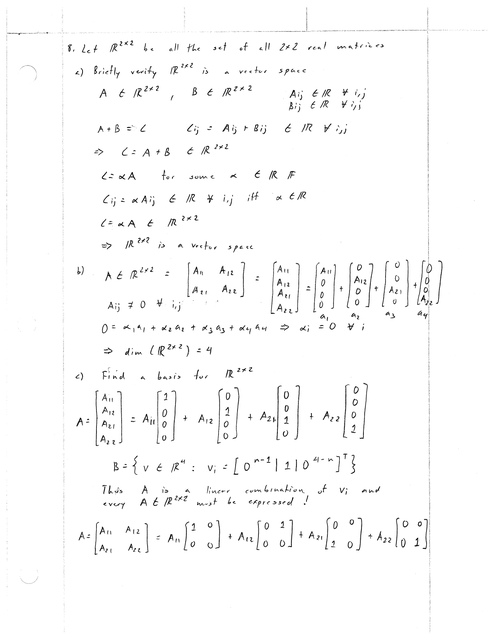 8. Let ℝ²ˣ² be all the set of all 2x2 real matrices
a) Briefly verify ℝ²ˣ² is a vector space
A ∈ ℝ²ˣ² , B ∈ ℝ²ˣ² Aij ∈ ℝ ∀ i,j
Bij ∈ ℝ ∀ i,j
A+B = C Cij = Aij + Bij ∈ ℝ ∀ i,j
⇒ C = A + B ∈ ℝ²ˣ²
C = αA for some α ∈ ℝ F
Cij = αAij ∈ ℝ ∀ i,j iff α ∈ ℝ
C = αA ∈ ℝ²ˣ²
⇒ ℝ²ˣ² is a vector space
b) A ∈ ℝ²ˣ² = [A11 A12; A21 A22] = [A11; A12; A21; A22] = [A11; 0; 0; 0] + [0; A12; 0; 0] + [0; 0; A21; 0] + [0; 0; 0; A22]
Aij ≠ 0 ∀ i,j a1 a2 a3 a4
0 = α1a1 + α2a2 + α3a3 + α4a4 ⇒ αi = 0 ∀ i
⇒ dim (ℝ²ˣ²) = 4
c) Find a basis for ℝ²ˣ²
A = [A11; A12; A21; A22] = A11 [1; 0; 0; 0] + A12 [0; 1; 0; 0] + A21 [0; 0; 1; 0] + A22 [0; 0; 0; 1]
B = { v ∈ ℝ⁴ : vi = [0ⁿ⁻¹ | 1 | 0⁴⁻ⁿ]ᵀ }
Thus A is a linear combination of vi and
every A ∈ ℝ²ˣ² must be expressed!
A = [A11 A12; A21 A22] = A11 [1 0; 0 0] + A12 [0 1; 0 0] + A21 [0 0; 1 0] + A22 [0 0; 0 1]